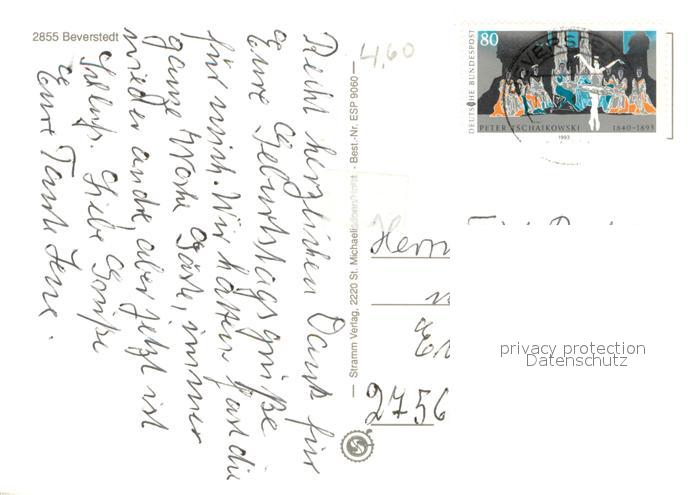 2855 Beverstedt
Recht herzlichen Dank für
Eure Geburtstagsgrüße
für mich. Wir hatten fast die
ganze Woche Gäste, immer
wieder andre, aber jetzt ist
Schluß. Liebe Grüße
Eure Tante Irene.
Stramm Verlag, 2220 St. Michaelisdonn/Holst. · Best.-Nr. ESP 9060
4,60
80
DEUTSCHE BUNDESPOST
PETER TSCHAIKOWSKI 1840-1893
1993
BEVERSTEDT
Herrn
2756
privacy protection
Datenschutz